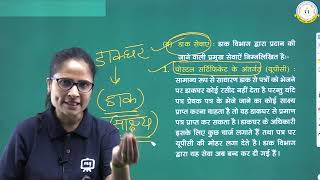 डाकघर
(डाक
साक्ष्य
डाक सेवाएँ : डाक विभाग द्वारा प्रदान की
जाने वाली प्रमुख सेवाएँ निम्नलिखित हैं:-
1. पोस्टल सर्टिफिकेट के अंतर्गत (यूपीसी) :
सामान्य रूप से साधारण डाक से पत्रों को भेजने
पर डाकघर कोई रसीद नहीं देता है परन्तु यदि
पत्र प्रेषक पत्र के भेजे जाने का कोई साक्ष्य
प्राप्त करना चाहता है तो वह डाकघर से प्रमाण
पत्र प्राप्त कर सकता है। डाकघर के अधिकारी
इसके लिए कुछ चार्ज लगाते हैं तथा पत्र पर
यूपीसी की मोहर लगा देते है। डाक विभाग
द्वारा यह सेवा अब बन्द कर दी गई हैं ।